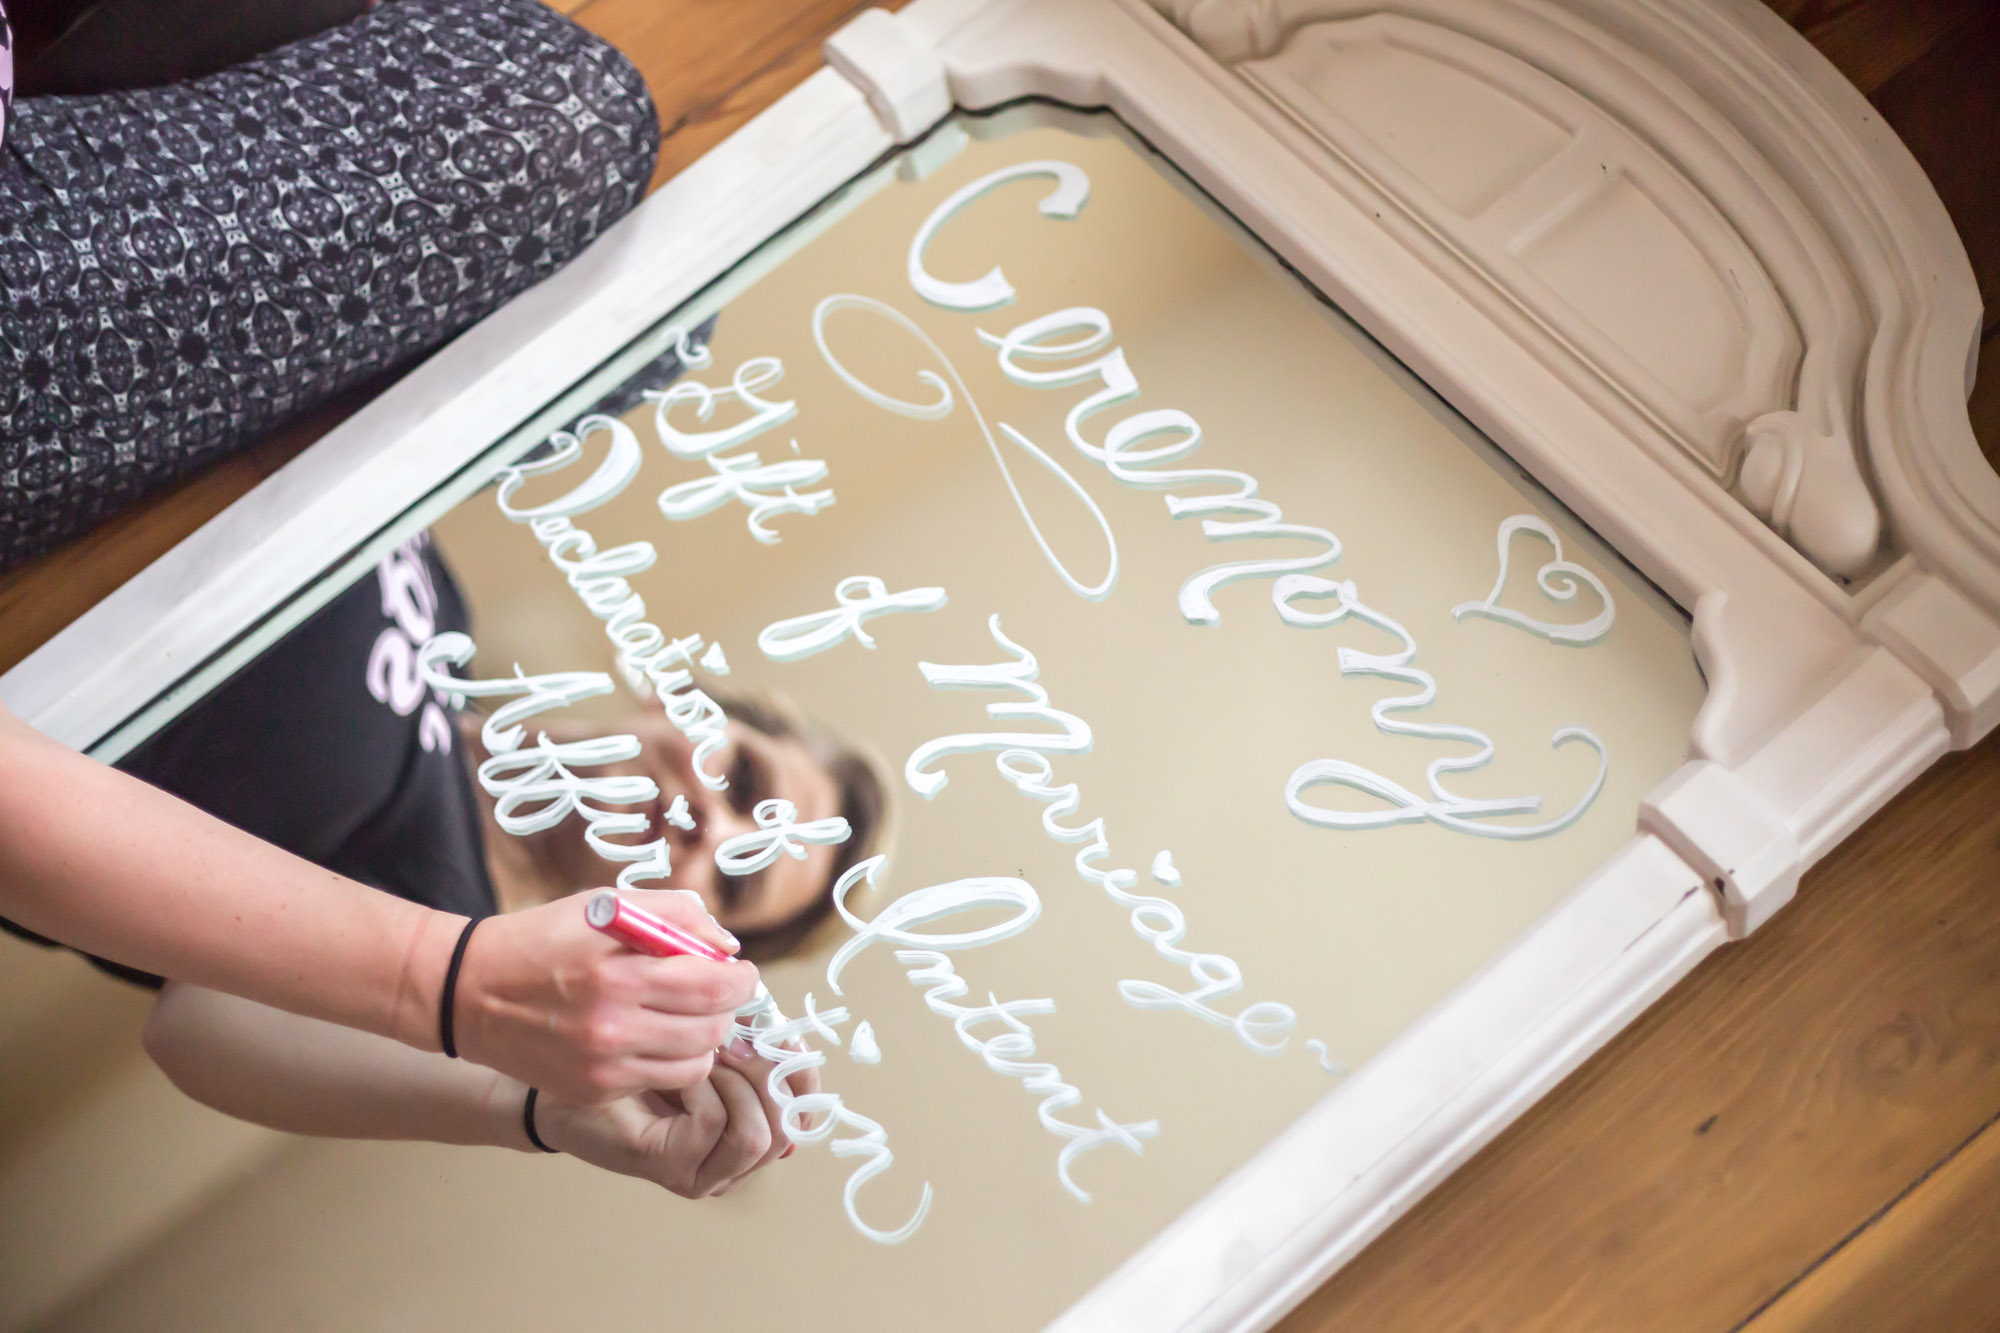 Ceremony
~ Gift of Marriage ~
Declaration of Intent
Affirmation